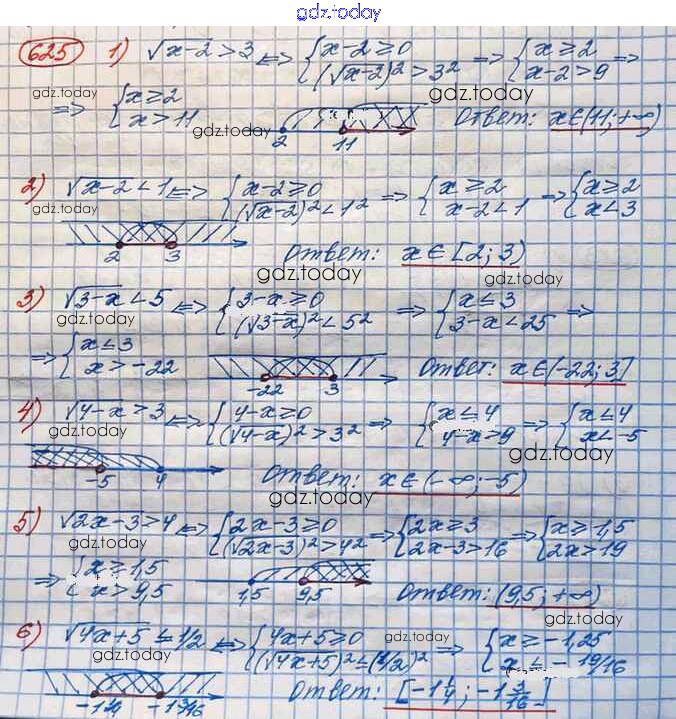 gdz.today
625 1) √x-2 > 3 <=> {x-2 ≥ 0 (√x-2)² > 3² => {x ≥ 2 x-2 > 9 =>
gdz.today
gdz.today
=> {x ≥ 2 x > 11
gdz.today
2 11 Ответ: x∈(11; +∞)
2) √x-2 < 1 <=> {x-2 ≥ 0 (√x-2)² < 1² => {x ≥ 2 x-2 < 1 => {x ≥ 2 x < 3
gdz.today
2 3 Ответ: x∈[2; 3)
gdz.today
3) √3-x < 5 <=> {3-x ≥ 0 (√3-x)² < 5² => {x ≤ 3 3-x < 25 =>
gdz.today
=> {x ≤ 3 x > -22
-22 3 Ответ: x∈(-22; 3]
gdz.today
4) √4-x > 3 <=> {4-x ≥ 0 (√4-x)² > 3² => {x ≤ 4 4-x > 9 => {x ≤ 4 x < -5
gdz.today
gdz.today
-5 4 Ответ: x∈(-∞; -5)
gdz.today
5) √2x-3 > 4 <=> {2x-3 ≥ 0 (√2x-3)² > 4² => {2x ≥ 3 2x-3 > 16 => {x ≥ 1,5 2x > 19
gdz.today
=> {x ≥ 1,5 x > 9,5
1,5 9,5 Ответ: (9,5; +∞)
gdz.today
6) √4x+5 ≤ 1/2 <=> {4x+5 ≥ 0 (√4x+5)² ≤ (1/2)² => {x ≥ -1,25 x ≤ -19/16
gdz.today
gdz.today
-1 1/4 -19/16 Ответ: [-1 1/4; -1 3/16]
gdz.today